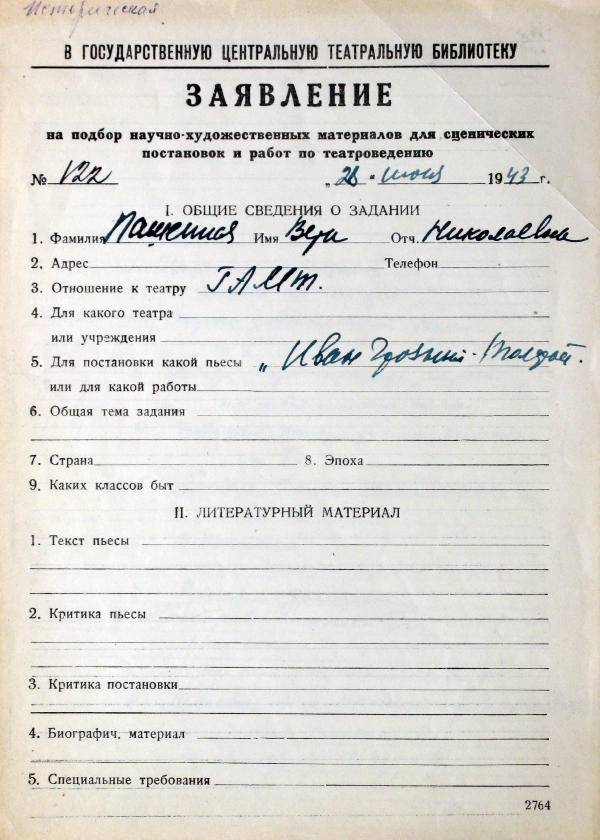 Историческая
В ГОСУДАРСТВЕННУЮ ЦЕНТРАЛЬНУЮ ТЕАТРАЛЬНУЮ БИБЛИОТЕКУ
ЗАЯВЛЕНИЕ
на подбор научно-художественных материалов для сценических
постановок и работ по театроведению
№ 122 „ 28 " июня 1943 г.
I. ОБЩИЕ СВЕДЕНИЯ О ЗАДАНИИ
1. Фамилия Пашенная Имя Вера Отч. Николаевна
2. Адрес Телефон
3. Отношение к театру ГАМТ.
4. Для какого театра
или учреждения
5. Для постановки какой пьесы „ Иван Грозный - Толстой.
или для какой работы
6. Общая тема задания
7. Страна 8. Эпоха
9. Каких классов быт
II. ЛИТЕРАТУРНЫЙ МАТЕРИАЛ
1. Текст пьесы
2. Критика пьесы
3. Критика постановки
4. Биографич. материал
5. Специальные требования
2764